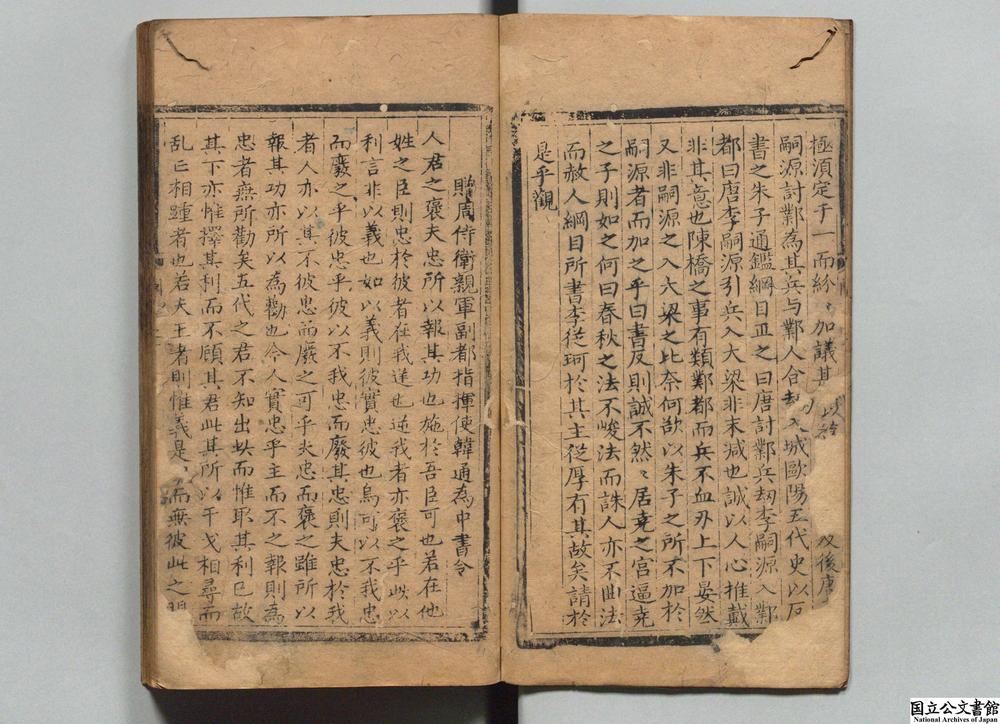 極須定于一而紛〻加議其以給及後唐
嗣源討鄴為其兵与鄴人合刼入城歐陽五代史以反
書之朱子通鑑綱目正之曰唐討鄴兵刼李嗣源入鄴
都曰唐李嗣源引兵入大梁非末減也誠以人心推戴
非其意也陳橋之事有類鄴都而兵不血刃上下晏然
又非嗣源之入大梁之比奈何欲以朱子之所不加於
嗣源者而加之乎曰書反則誠不然〻居堯之宮逼堯
之子則如之何曰春秋之法不峻法而誅人亦不曲法
而赦人綱目所書李從珂於其主從厚有其故矣請於
是乎觀
贈周侍衛親軍副都指揮使韓通為中書令
人君之褒夫忠所以報其功也施於吾臣可也若在他
姓之臣則忠於彼者在我逆也逆我者亦褒之乎哉以
利言非以義也如以義則彼實忠彼也烏可以不我忠
而廢之乎彼忠乎彼以不我忠而廢其忠則夫忠於我
者人亦以其不彼忠而廢之可乎夫忠而褒之雖所以
報其功亦所以為勸也今人實忠乎主而不之報則為
忠者無所勸矣五代之君不知出此而惟耴其利已故
其下亦惟擇其利而不顧其君此其所以干戈相尋而
乱亡相踵者也若夫王者則惟義是而無彼此之間
国立公文書館
National Archives of Japan